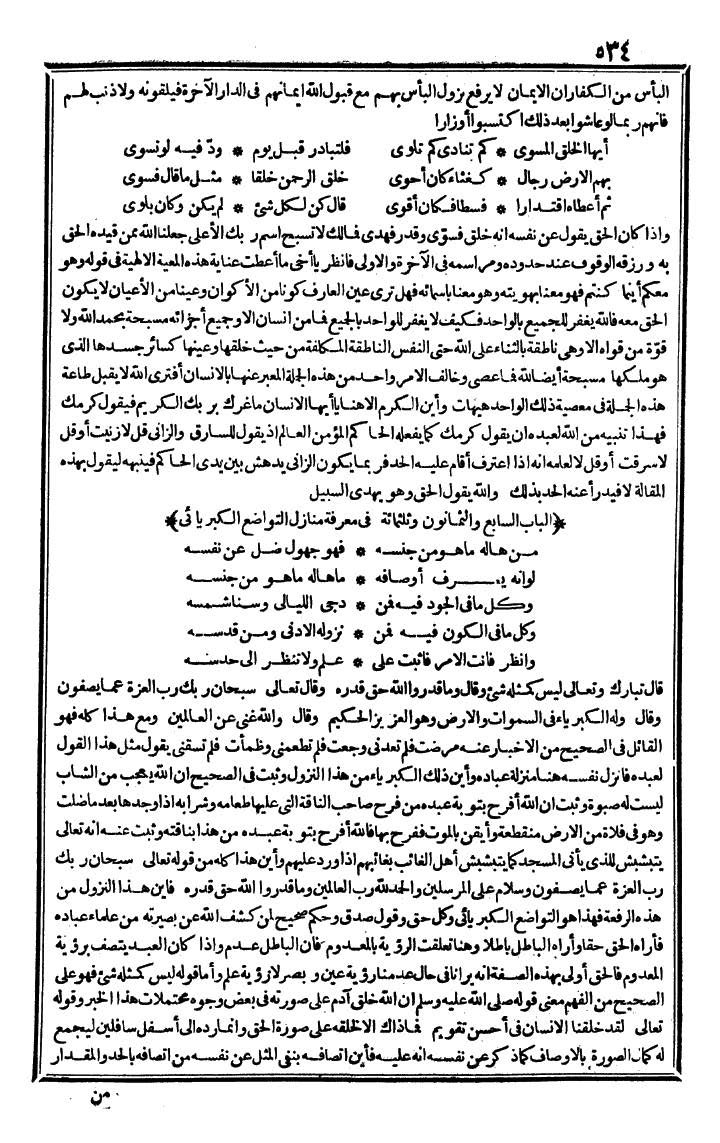 ٥٣٤
البأس من الكفار ان الايمان لا يرفع نزول البأس بهم مع قبول الله ايمانهم فى الدار الآخرة فيلقونه ولا ذنب لهم
فانهم ربما لو عاشوا بعد ذلك اكتسبوا أوزارا
أيها الخلق المسوى * كم تنادى كم تلوى فلتبادر قبل يوم * ودّ فيه لو تسوى
بهم الارض رجال * كغثاء كان أحوى خلق الرحمن خلقا * مثل ما قال فسوى
ثم أعطاه اقتدارا * فسطا فكان أقوى قال كن لكل شئ * لم يكن وكان بلوى
واذا كان الحق يقول عن نفسه انه خلق فسوّى وقدر فهدى فمالك لا تسبح اسم ربك الأعلى جعلنا الله ممن قيده الحق
به ورزقه الوقوف عند حدوده ومراسمه فى الآخرة والاولى فانظر يا أخى ما أعطت عناية هذه المعية الالهية فى قوله وهو
معكم أينما كنتم فهو معنا بهويته وهو معنا باسمائه فهل ترى عين العارف كونا من الأكوان وعينا من الأعيان لا يكون
الحق معه فالله يغفر للجميع بالواحد فكيف لا يغفر للواحد بالجميع فما من انسان الا وجميع أجزائه مسبحة بحمد الله ولا
قوّة من قواه الا وهى ناطقة بالثناء على الله حتى النفس الناطقة المكلفة من حيث خلقها وعينها كسائر جسدها الذى
هو ملكها مسبحة أيضا لله فما عصى وخالف الامر واحد من هذه الجملة المعبر عنها بالانسان أفترى الله لا يقبل طاعة
هذه الجملة فى معصية ذلك الواحد هيهات وأين الكرم الا هنا يا أيها الانسان ما غرك بربك الكريم فيقول كرمك
فهذا تنبيه من الله لعبده ان يقول كرمك كما يفعله الحاكم المؤمن العالم اذ يقول للسارق والزانى قل لا زنيت أو قل
لا سرقت أو قل لا لعلمه انه اذا اعترف أقام عليه الحد فربما يكون الزانى يدهش بين يدى الحاكم فينبهه ليقول بهذه
المقالة لا فيدرأ عنه الحد بذلك والله يقول الحق وهو يهدى السبيل
﴿الباب السابع والثمانون وثلثمائة فى معرفة منازل التواضع الكبريائى﴾
من هاله ما هو من جنسه * فهو جهول ضل عن نفسه
لو انه يعرف أوصافه * ما هاله ما هو من جنسه
وكل ما فى الجود فيه فمن * دجى الليالى وسنا شمسه
وكل ما فى الكون فيه فمن * نزوله الادنى ومن قدسه
وانظر فانت الامر فاثبت على * علم ولا تنظر الى حدسه
قال تبارك وتعالى ليس كمثله شئ وقال وما قدروا الله حق قدره وقال تعالى سبحان ربك رب العزة عما يصفون
وقال وله الكبرياء فى السموات والارض وهو العزيز الحكيم وقال والله غنى عن العالمين ومع هذا كله فهو
القائل فى الصحيح من الاخبار عنه مرضت فلم تعدنى وجعت فلم تطعمنى وظمأت فلم تسقنى يقول مثل هذا القول
لعبده فانزل نفسه هنا منزلة عباده وأين ذلك الكبرياء من هذا النزول وثبت فى الصحيح ان الله يعجب من الشاب
ليست له صبوة وثبت ان الله أفرح بتوبة عبده من فرح صاحب الناقة التى عليها طعامه وشرابه اذا وجدها بعد ما ضلت
وهو فى فلاة من الارض منقطعة وأيقن بالموت ففرح بها فالله أفرح بتوبة عبده من هذا بناقته وثبت عنه انه تعالى
يتبشبش للذى يأتى المسجد كما يتبشبش أهل الغائب بغائبهم اذا ورد عليهم وأين هذا كله من قوله تعالى سبحان ربك
رب العزة عما يصفون وسلام على المرسلين والحمد لله رب العالمين وما قدروا الله حق قدره فاين هذا النزول من
هذه الرفعة فهذا هو التواضع الكبريائى وكل حق وقول صدق وحكم صحيح لمن كشف الله عن بصيرته من علماء عباده
فأراه الحق حقا وأراه الباطل باطلا وهنا تعلقت الرؤية بالمعدوم فان الباطل عدم واذا كان العبد يتصف برؤية
المعدوم فالحق أولى بهذه الصفة انه يرانا فى حال عدمنا رؤية عين وبصر لا رؤية علم وأما قوله ليس كمثله شئ فهو على
الصحيح من الفهم معنى قوله صلى الله عليه وسلم ان الله خلق آدم على صورته فى بعض وجوه محتملات هذا الخبر وقوله
تعالى لقد خلقنا الانسان فى أحسن تقويم فما ذاك الا خلقه على صورة الحق وانما رده الى أسفل سافلين ليجمع
له كمال الصورة بالاوصاف كما ذكر عن نفسه انه عليه فأين اتصافه بنفى المثل عن نفسه من اتصافه بالحد والمقدار
من